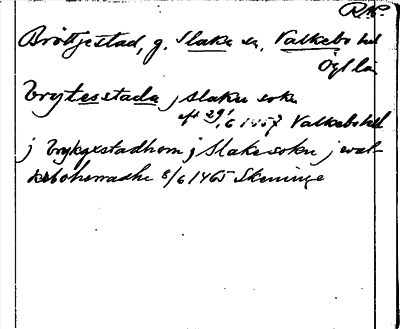 RAp.
Bröttjestad, g. Slaka sn, Valkebo hd
Ögl län
Brytesstada j Slaka sokn
eft 29/6 1457 Valkebo hd
j Brykgxstadhom j Slake sokn j wal-
kebohæradhe 8/6 1465 Skeninge